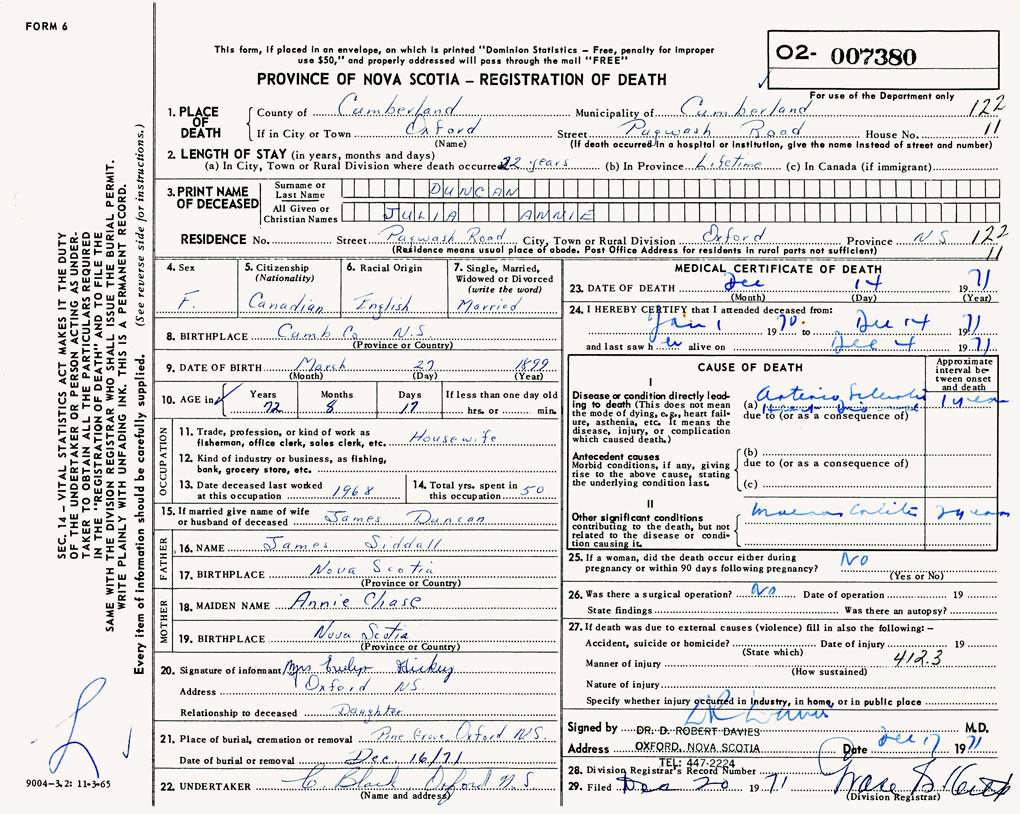 FORM 6
This form, if placed in an envelope, on which is printed "Dominion Statistics – Free, penalty for improper
use $50," and properly addressed will pass through the mail "FREE"
O2- 007380
For use of the Department only
PROVINCE OF NOVA SCOTIA – REGISTRATION OF DEATH
1. PLACE OF DEATH
County of Cumberland Municipality of Cumberland 122
If in City or Town Oxford Street Pugwash Road House No. 11
(Name) (If death occurred in a hospital or institution, give the name instead of street and number)
2. LENGTH OF STAY (in years, months and days)
(a) In City, Town or Rural Division where death occurred 22 years (b) In Province Lifetime (c) In Canada (if immigrant)
3. PRINT NAME OF DECEASED
Surname or Last Name DUNCAN
All Given or Christian Names JULIA ANNIE
RESIDENCE No. Street Pugwash Road City, Town or Rural Division Oxford Province N.S. 122
(Residence means usual place of abode. Post Office Address for residents in rural parts not sufficient) 11
4. Sex F.
5. Citizenship (Nationality) Canadian
6. Racial Origin English
7. Single, Married, Widowed or Divorced (write the word) Married
8. BIRTHPLACE Camb Co. N.S.
(Province or Country)
9. DATE OF BIRTH March 27 1899
(Month) (Day) (Year)
10. AGE in Years 72 Months 8 Days 17 If less than one day old hrs. or min.
OCCUPATION
11. Trade, profession, or kind of work as fisherman, office clerk, sales clerk, etc. Housewife
12. Kind of industry or business, as fishing, bank, grocery store, etc.
13. Date deceased last worked at this occupation 1968
14. Total yrs. spent in this occupation 50
15. If married give name of wife or husband of deceased James Duncan
FATHER
16. NAME James Siddall
17. BIRTHPLACE Nova Scotia
(Province or Country)
MOTHER
18. MAIDEN NAME Annie Chase
19. BIRTHPLACE Nova Scotia
(Province or Country)
20. Signature of informant Mrs Evelyn Hickey
Address Oxford NS.
Relationship to deceased Daughter
21. Place of burial, cremation or removal Pine Grove Oxford N.S.
Date of burial or removal Dec. 16/71
22. UNDERTAKER C Black Oxford N.S.
(Name and address)
MEDICAL CERTIFICATE OF DEATH
23. DATE OF DEATH Dec 14 1971
(Month) (Day) (Year)
24. I HEREBY CERTIFY that I attended deceased from:
Jan 1 1970. to Dec 14 1971
and last saw her alive on Dec 4 1971
CAUSE OF DEATH
Approximate interval between onset and death
I
Disease or condition directly leading to death (This does not mean the mode of dying, e.g., heart failure, asthenia, etc. It means the disease, injury, or complication which caused death.)
(a) Arterio Sclerotic 1 year
due to (or as a consequence of)
Antecedent causes
Morbid conditions, if any, giving rise to the above cause, stating the underlying condition last.
(b)
due to (or as a consequence of)
(c)
II
Other significant conditions contributing to the death, but not related to the disease or condition causing it.
Mucous Colitis 2 years
25. If a woman, did the death occur either during pregnancy or within 90 days following pregnancy? No
(Yes or No)
26. Was there a surgical operation? No Date of operation 19
State findings Was there an autopsy?
27. If death was due to external causes (violence) fill in also the following:–
Accident, suicide or homicide? Date of injury 19
(State which)
Manner of injury 412.3
(How sustained)
Nature of injury
Specify whether injury occurred in industry, in home, or in public place
DR Davies
Signed by DR. D. ROBERT DAVIES M.D.
Address OXFORD, NOVA SCOTIA Date Dec 17 1971
TEL: 447-2224
28. Division Registrar's Record Number
29. Filed Dec 20 1971
(Division Registrar)
SEC. 14 – VITAL STATISTICS ACT MAKES IT THE DUTY
OF THE UNDERTAKER OR PERSON ACTING AS UNDER-
TAKER TO OBTAIN ALL THE PARTICULARS REQUIRED
IN THE "REGISTRATION OF DEATH" AND TO FILE THE
SAME WITH THE DIVISION REGISTRAR WHO SHALL ISSUE THE BURIAL PERMIT.
WRITE PLAINLY WITH UNFADING INK. THIS IS A PERMANENT RECORD.
Every item of information should be carefully supplied. (See reverse side for instructions.)
9004-3.2: 11-3-65